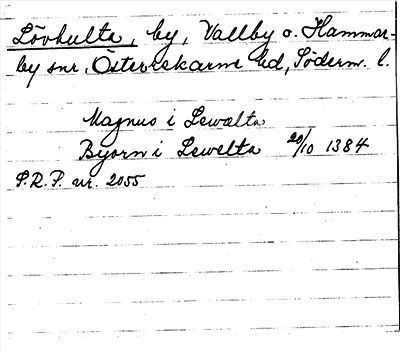 Lövhulta, by, Vallby o. Hammar-
by snr, Österrekarne hd, Söderm. l.
Magnus i Lewælta
Byorn i Lewelta 20/10 1384
S.R.P. nr. 2055